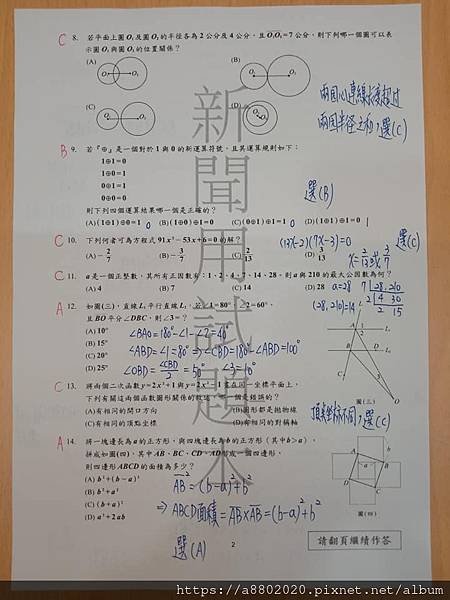 C 8. 若平面上圓O₁及圓O₂的半徑各為2公分及4公分，且O₁O₂=7公分，則下列哪一個圖可以表
示圓O₁與圓O₂的位置關係？
(A) (B)
(C) (D)
兩圓心連線長度超過
兩圓半徑之和，選(C)
B 9. 若『⊕』是一個對於1與0的新運算符號，且其運算規則如下：
1⊕1=0
1⊕0=1
0⊕1=1
0⊕0=0
選(B)
則下列四個運算結果哪一個是正確的？
(A) (1⊕1)⊕0=1 (B) (1⊕0)⊕1=0 (C) (0⊕1)⊕1=1 (D) (1⊕1)⊕1=0
C 10. 下列何者可為方程式91x²−53x+6=0的解？ (13x-2)(7x-3)=0 選(C)
(A) −2/7 (B) −3/7 (C) 2/13 (D) 3/13 x=2/13或3/7
C 11. a是一個正整數，其所有正因數有：1、2、4、7、14、28，則a與210的最大公因數為何？
(A) 4 (B) 7 (C) 14 (D) 28 a=28
(28,210)=14
A 12. 如圖(三)，直線L₁平行直線L₂，若∠1=80°，∠2=60°，
且BO平分∠DBC，則∠3=？
(A) 10°
(B) 15°
(C) 20°
(D) 25°
∠BAO=180°-∠1-∠2=40°
∠ABD=∠1=80° ⇒ ∠CBD=180°-∠ABD=100°
∠OBD=∠CBD/2=50° ∠3=10°
圖(三)
C 13. 將兩個二次函數y=2x²+1與y=2x²−1畫在同一坐標平面上，
下列有關這兩個函數圖形關係的敘述，哪一個是錯誤的？
(A)有相同的開口方向 (B)圖形都是拋物線
(C)有相同的頂點坐標 (D)有相同的對稱軸
頂點坐標不同，選(C)
A 14. 將一塊邊長為a的正方形，與四塊邊長為b的正方形（其中b>a），
拼成如圖(四)，其中AB、BC、CD、AD形成一個四邊形，
則四邊形ABCD的面積為多少？
(A) b²+(b−a)²
(B) b²+a²
(D) a²+2ab
AB²=(b-a)²+b²
⇒ABCD面積=AB×AB=(b-a)²+b²
選(A)
圖(四)
2
請翻頁繼續作答
新聞用試題本
https://a8802020.pixnet.net/album